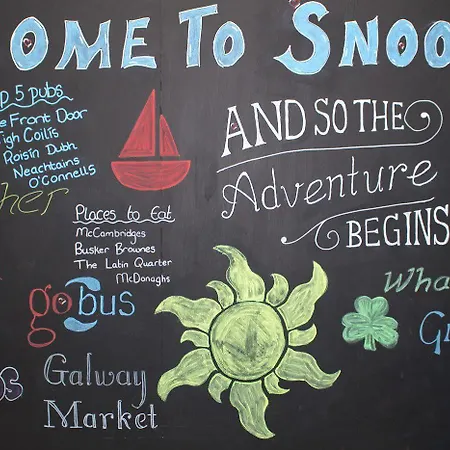 OME TO SNOO
p 5 pubs
e Front Door
igh Coilis
Roisin Dubh
Neachtains
O'Connells
her
AND SO THE
Adventure
BEGINS
Places to Eat
McCambridges
Busker Brownes
The Latin Quarter
McDonaghs
gobus
Wha
G
os
Galway
Market